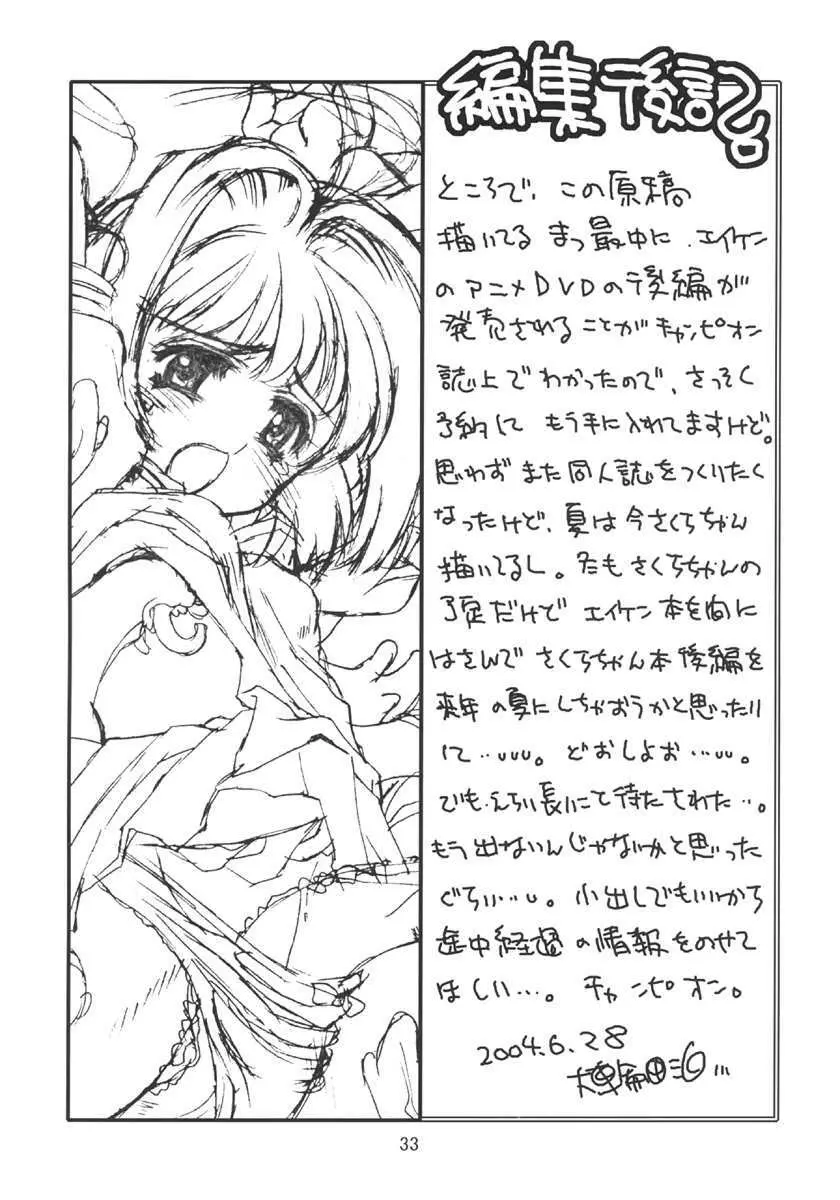 編集後記。
ところで、この原稿
描いてるまっ最中に、エイケン
のアニメDVDの後編が
発売されることがチャンピオン
誌上でわかったので、さっそく
予約して もう手に入れてますけど。
思わずまた同人誌をつくりたく
なったけど、夏は今さくらちゃん
描いてるし。冬もさくらちゃんの
予定だけど エイケン本を間に
はさんで さくらちゃん本後編を
来年の夏にしちゃおうかと思ったり
して‥‥。どおしよお‥‥。
でも、えらい長いこと待たされた‥。
もう出ないんじゃないかと思った
ぐらい‥‥。小出しでもいいから
途中経過の情報をのせて
ほしい‥‥。チャンピオン。
2004.6.28
33